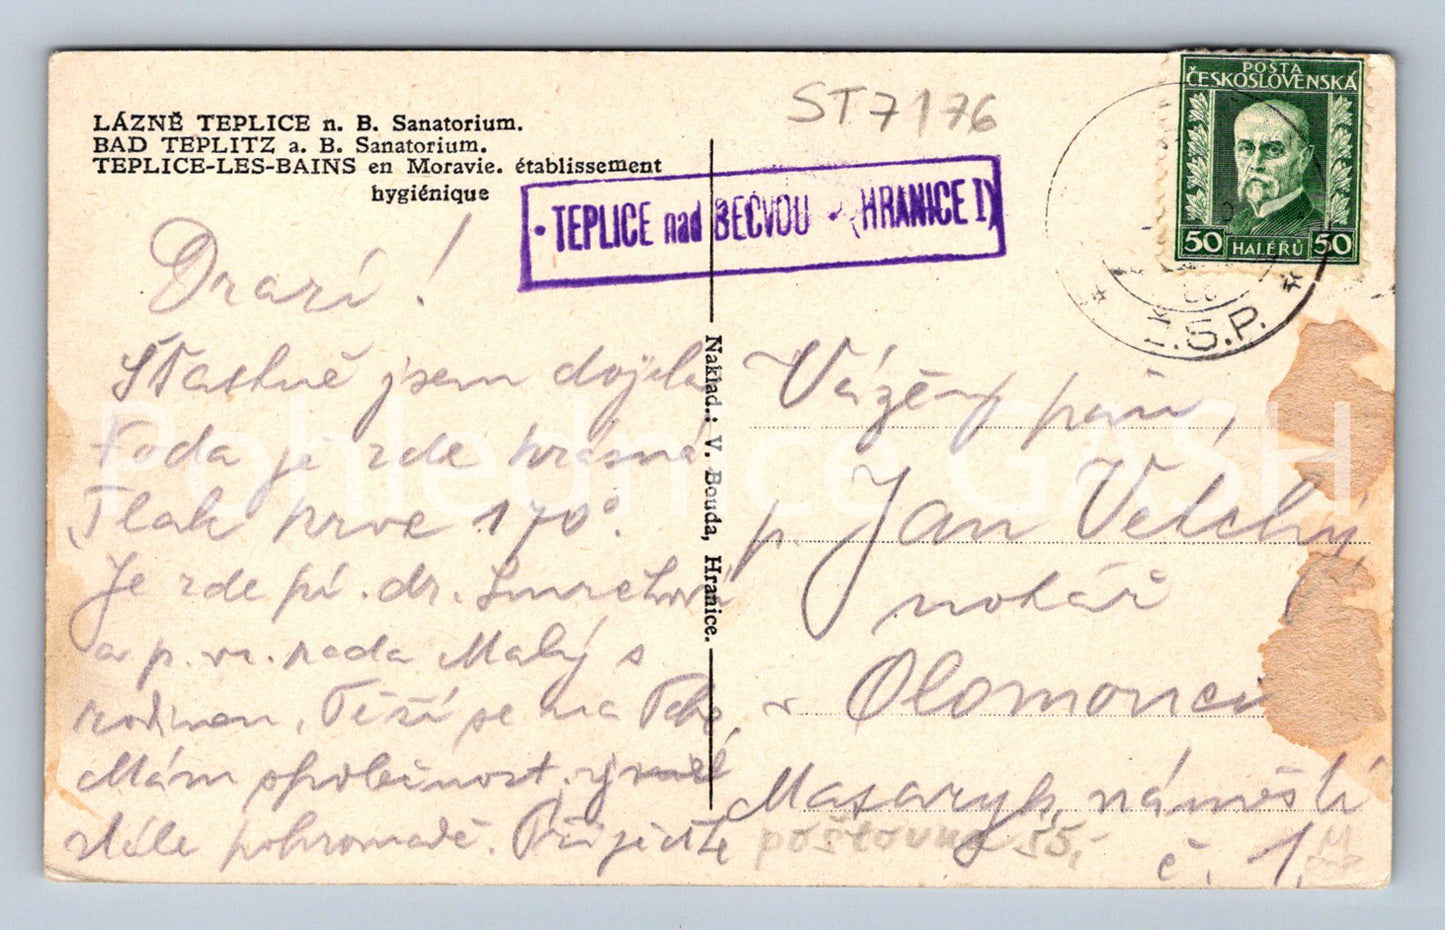 LÁZNĚ TEPLICE n. B. Sanatorium.
BAD TEPLITZ a. B. Sanatorium.
TEPLICE-LES-BAINS en Moravie. établissement
hygiénique
ST7176
TEPLICE nad BEČVOU (HRANICE I)
POŠTA
ČESKOSLOVENSKÁ
50 HALÉŘŮ 50
Ž.S.P.
Drazí!
Šťastně jsem dojela
Voda je zde krásná
Tlak krve 170°.
Je zde pí. dr.
a p. vr. rada Malý s
rodinou, Těší se na Tebe,
Mám společnost,
stále pohromadě. Přijeďte
Naklad.: V. Bouda, Hranice.
Vážený pán,
p. Jan Velchý,
notář
v Olomouci
Masaryk. náměstí
č. 1.
poštovna 55,-
Pohlednice GASH